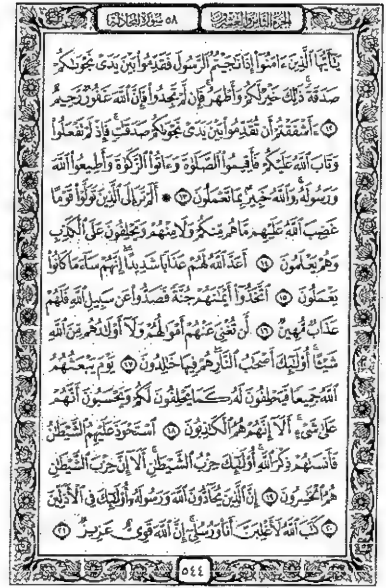 الجزء الثامن والعشرون
٥٨ سورة المجادلة
يَٰٓأَيُّهَا ٱلَّذِينَ ءَامَنُوٓا۟ إِذَا نَٰجَيْتُمُ ٱلرَّسُولَ فَقَدِّمُوا۟ بَيْنَ يَدَىْ نَجْوَىٰكُمْ
صَدَقَةً ۚ ذَٰلِكَ خَيْرٌ لَّكُمْ وَأَطْهَرُ ۚ فَإِن لَّمْ تَجِدُوا۟ فَإِنَّ ٱللَّهَ غَفُورٌ رَّحِيمٌ
١٢ ءَأَشْفَقْتُمْ أَن تُقَدِّمُوا۟ بَيْنَ يَدَىْ نَجْوَىٰكُمْ صَدَقَٰتٍ ۚ فَإِذْ لَمْ تَفْعَلُوا۟
وَتَابَ ٱللَّهُ عَلَيْكُمْ فَأَقِيمُوا۟ ٱلصَّلَوٰةَ وَءَاتُوا۟ ٱلزَّكَوٰةَ وَأَطِيعُوا۟ ٱللَّهَ
وَرَسُولَهُۥ ۚ وَٱللَّهُ خَبِيرٌۢ بِمَا تَعْمَلُونَ ١٣ ۞ أَلَمْ تَرَ إِلَى ٱلَّذِينَ تَوَلَّوْا۟ قَوْمًا
غَضِبَ ٱللَّهُ عَلَيْهِم مَّا هُم مِّنكُمْ وَلَا مِنْهُمْ وَيَحْلِفُونَ عَلَى ٱلْكَذِبِ
وَهُمْ يَعْلَمُونَ ١٤ أَعَدَّ ٱللَّهُ لَهُمْ عَذَابًا شَدِيدًا ۖ إِنَّهُمْ سَآءَ مَا كَانُوا۟
يَعْمَلُونَ ١٥ ٱتَّخَذُوٓا۟ أَيْمَٰنَهُمْ جُنَّةً فَصَدُّوا۟ عَن سَبِيلِ ٱللَّهِ فَلَهُمْ
عَذَابٌ مُّهِينٌ ١٦ لَّن تُغْنِىَ عَنْهُمْ أَمْوَٰلُهُمْ وَلَآ أَوْلَٰدُهُم مِّنَ ٱللَّهِ
شَيْـًٔا ۚ أُو۟لَٰٓئِكَ أَصْحَٰبُ ٱلنَّارِ ۖ هُمْ فِيهَا خَٰلِدُونَ ١٧ يَوْمَ يَبْعَثُهُمُ
ٱللَّهُ جَمِيعًا فَيَحْلِفُونَ لَهُۥ كَمَا يَحْلِفُونَ لَكُمْ ۖ وَيَحْسَبُونَ أَنَّهُمْ
عَلَىٰ شَىْءٍ ۚ أَلَآ إِنَّهُمْ هُمُ ٱلْكَٰذِبُونَ ١٨ ٱسْتَحْوَذَ عَلَيْهِمُ ٱلشَّيْطَٰنُ
فَأَنسَىٰهُمْ ذِكْرَ ٱللَّهِ ۚ أُو۟لَٰٓئِكَ حِزْبُ ٱلشَّيْطَٰنِ ۚ أَلَآ إِنَّ حِزْبَ ٱلشَّيْطَٰنِ
هُمُ ٱلْخَٰسِرُونَ ١٩ إِنَّ ٱلَّذِينَ يُحَآدُّونَ ٱللَّهَ وَرَسُولَهُۥٓ أُو۟لَٰٓئِكَ فِى ٱلْأَذَلِّينَ
٢٠ كَتَبَ ٱللَّهُ لَأَغْلِبَنَّ أَنَا۠ وَرُسُلِىٓ ۚ إِنَّ ٱللَّهَ قَوِىٌّ عَزِيزٌ ٢١
٥٤٤